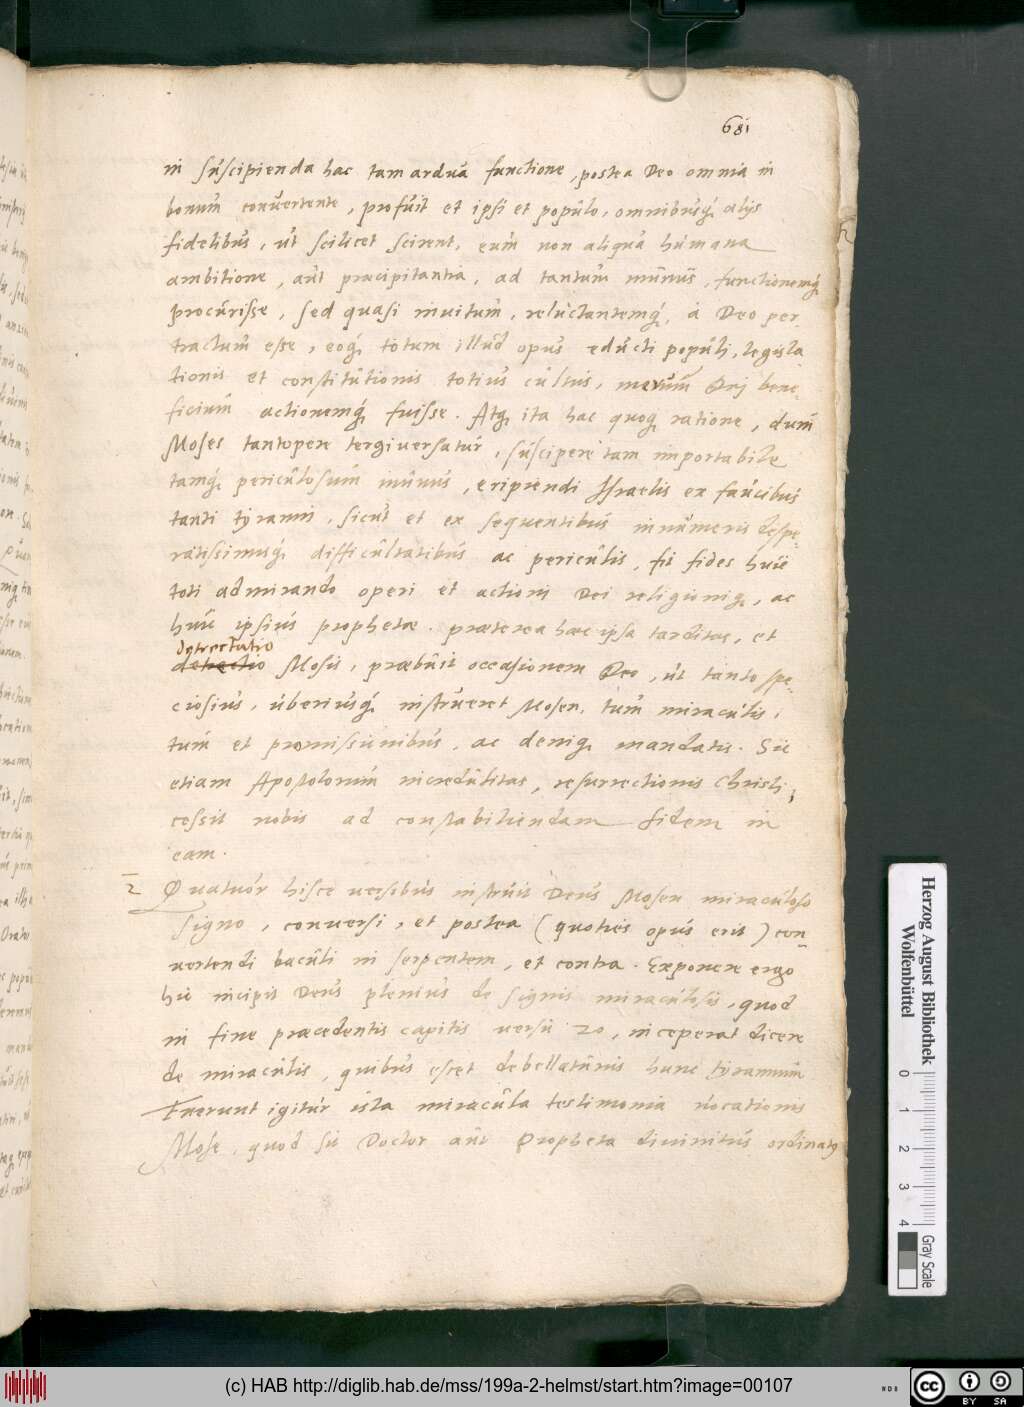 681
in suscipienda hac tam ardua functione, postea Deo omnia in
bonum convertente, profuit et ipsi et populo, omnibusq́, alijs
fidelibus, ut scilicet scirent, eum non aliqua humana
ambitione, aut præcipitantia, ad tantum munus, functionemq́
procurisse, sed quasi invitum, reluctantemq́, à Deo per-
tractum esse, eoq, totum illud opus educti populi, legisla
tionis et constitutionis totius cultus, merum Dej bene-
ficium actionemq́ fuisse. Atq, ita hac quoq, ratione, dum
Moses tantopere tergiversatur, suscipere tam importabile
tamq́, periculosum munus, eripiendi Israelis ex faucibus
tanti tyranni, sicut et ex sequentibus innumeris despe-
ratissimisq́, difficultatibus ac periculis, fit fides huic
toti admirando operi et actioni Dei religioniq, ac
huic ipsius prophetæ. præterea hæc ipsa tarditas, et
detrectatio
detrectio Mosis, præbuit occasionem Deo, ut tanto spe-
ciosius, uberiusq́, instrueret Mosen, tum miraculis,
tum et promissionibus, ac deniq, mandatis. Sic
etiam Apostolorum incredulitas, resurrectionis Christi,
cessit nobis ad constabiliendam fidem in
eam.
2 Quatuor hisce versibus instruit Deus Mosen miraculoso
signo, conversi, et postea (quoties opus erit) con-
vertendi baculi in serpentem, et contra. Exponere ergo
hic incipit Deus plenius de signis miraculisis, quod
in fine præcedentis capitis versu 20, inceperat dicere
de miraculis, quibus esset debellaturus hunc tyrannum
Fuerunt igitur ista miracula testimonia vocationis
Mose, quod sit Doctor aut Propheta divinitus ordinatus
Herzog August Bibliothek
Wolfenbüttel
0 1 2 3 4
Gray Scale
(c) HAB http://diglib.hab.de/mss/199a-2-helmst/start.htm?image=00107
cc BY SA